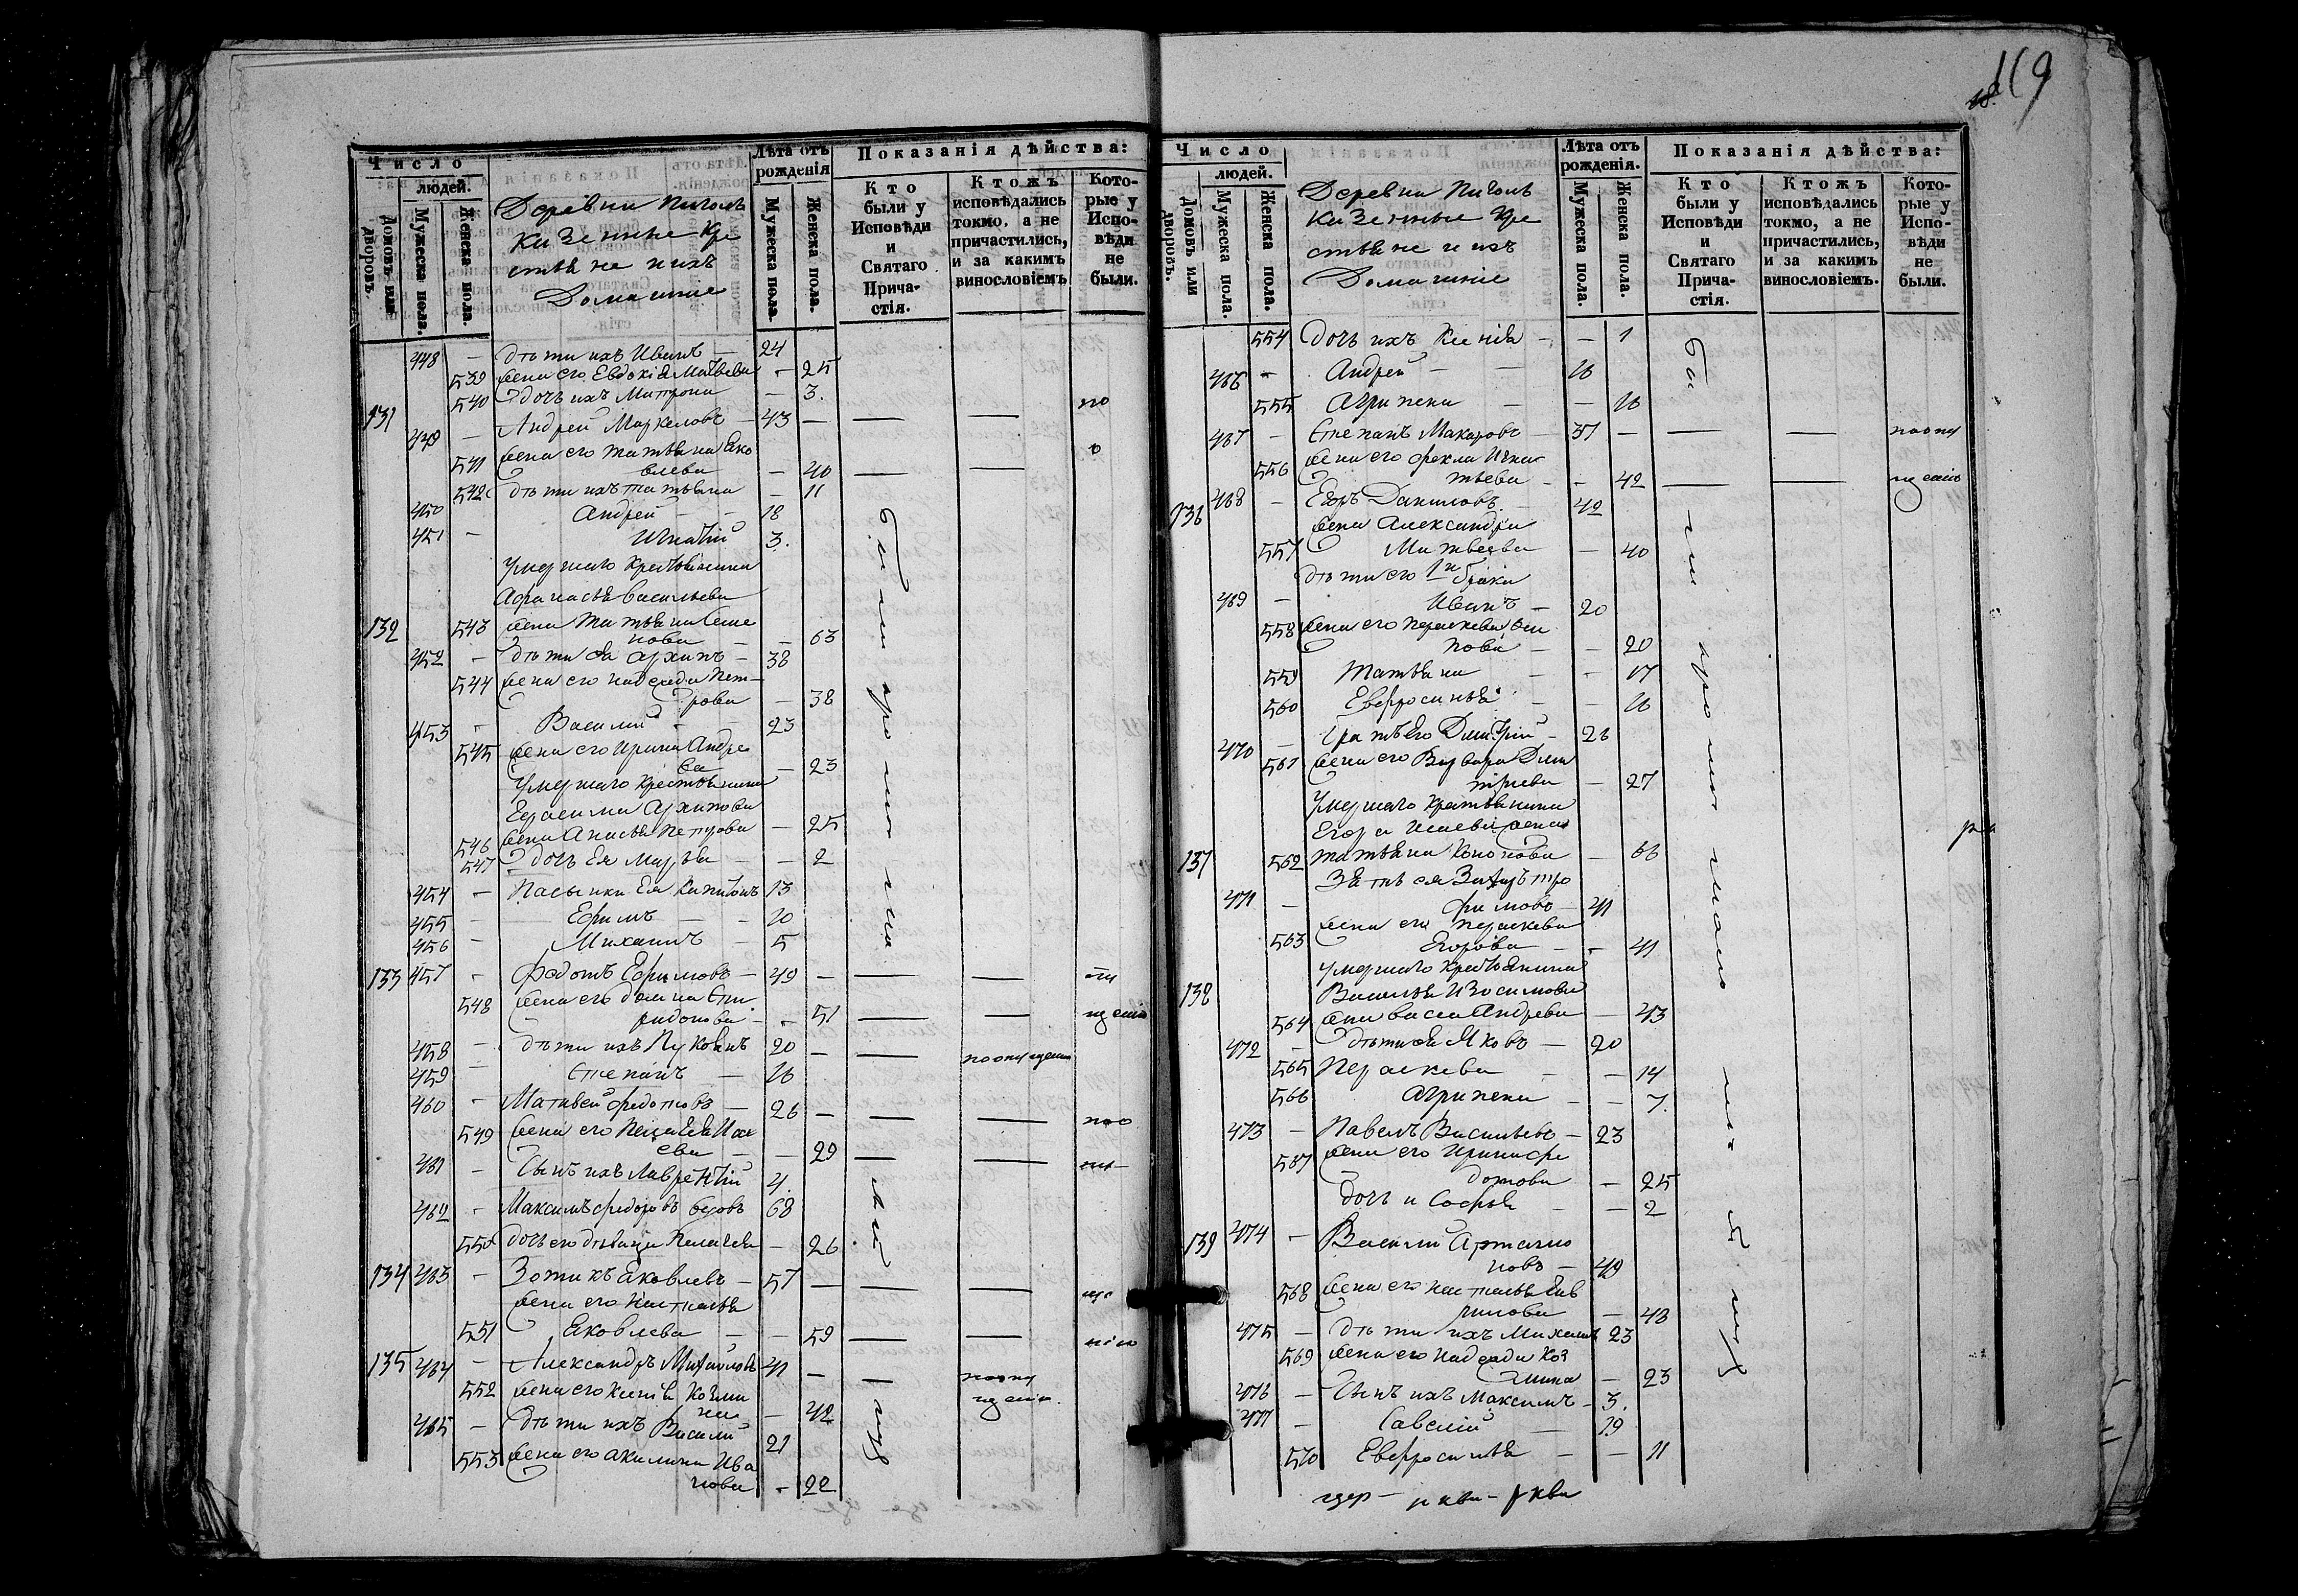 169
Число
людей.
Домовъ или дворовъ.
Мужеска пола.
Женска пола.
Деревни
казенные кре
стьяне и ихъ
Домашние
Лѣта отъ
рожденія
Мужеска пола.
Женска пола.
Показанія дѣйства:
Кто
были у
Исповѣди
и
Святаго
Прича-
стія.
Ктожъ
исповѣдались
токмо, а не
причастились,
и за какимъ
винословіемъ
Кото-
рые у
Испо-
вѣди
не
были.
448 — дѣти ихъ Иванъ — 24
539 жена его Евдокія Матвеева - 25
540 дочь ихъ Матрона — 3.
131 449 — Андрей Маркеловъ — 43 — — —
541 жена его Татьяна Яко
влева — 40 — —
542 дѣти ихъ Татьяна — 11
450 Андрей — — 18
451 — Игнатій 3.
Умершаго крестьянина
Афанасья Васильева
132 543 жена Татьяна Семе
нова — — 63
452 — дѣти ея Архипъ — 38
544 жена его Надежда Пет-
рова — 38
453 - Василий - — 23
545 жена его Ирина Андре
ва — 23
Умершаго крестьянина
Герасима Архипова
546 жена Анисья Петрова — 25
547 дочь ея Марья — — 2
454 — Пасынки ея Капитонъ 13
455 — Ефимъ — — 10
456 — Михаилъ — 5
133 457 - Федотъ Ефимовъ — 49 — — —
548 жена его Домна Спи
ридонова — - 51 — —
458 — дѣти ихъ Лукоянъ 20 — —
459 — Степанъ — 16
460 - Матвей Федотовъ — 26 — — —
549 жена его Пелагея
ева — — 29 — —
461 — Сынъ ихъ Лаврентій 4.
462 - Максимъ Федоровъ 68
550 дочь его дѣвица Пелагея — 26
134 463 — Зотикъ Яковлевъ — 57 — — —
жена его Наталья
551 Яковлева — — 59 — —
135 464 — Александръ Михайловъ 41 — —
552 жена его Ксенія Козми
на — 42
465 — дѣти ихъ Василий 21
553 жена его Акилина Ива
нова - 22
были
Число
людей.
Домовъ или дворовъ.
Мужеска пола.
Женска пола.
Деревни
казенные кре
стьяне и ихъ
Домашніе
Лѣта отъ
рожденія.
Мужеска пола.
Женска пола.
Показанія дѣйства:
Кто
были у
Исповѣди
и
Святаго
Прича-
стія.
Ктожъ
исповѣдались
токмо, а не
причастились,
и за какимъ
винословіемъ.
Кото-
рые у
Испо-
вѣди
не
были.
554 дочь ихъ Ксенія - — 1
466 - Андрей — — 16
555 Агрипена — — 16
467 - Степанъ Макаровъ — 37 — — —
556 жена его Фекла Игна
тьева - - 42 — —
136 468 — Егоръ Даниловъ — 42
жена Александра
557 Матвеева — 40
дѣти его 1го брака
469 — Иванъ — 20
558 жена его Параскева
пова — — 20
559 Татьяна — - 17
560 Евфросинья — — 16
470 — братъ его Димитрій — 26
561 жена его Варвара Дми
тріева — 27
Умершаго крестьянина
Егора Исаева жена
137 562 Татьяна Кононова — 66
471 — Зять ея Захаръ Тро
фимовъ — 41
563 жена его Параскева
Егорова — - 41
Умершаго крестьянина
138 Василья Изосимова
564 жена Васса Андреева — 43
472 — дѣти ея Яковъ — 20
565 Параскева — — 14
566 Агрипена — — 7.
473 — Павелъ Васильевъ — 23
567 жена его Ирина Фе
дотова — 25
дочь и Софья — — 2
139 474 — Василий Артамо
новъ — 49
568 жена его Наталья Гав
рилова — 48
475 — дѣти ихъ Михаилъ 23
569 жена его Надежда Коз
мина — 23
476 — Сынъ ихъ Максимъ — 3.
477 — Савелий — 19
570 Евфросинья — — 11